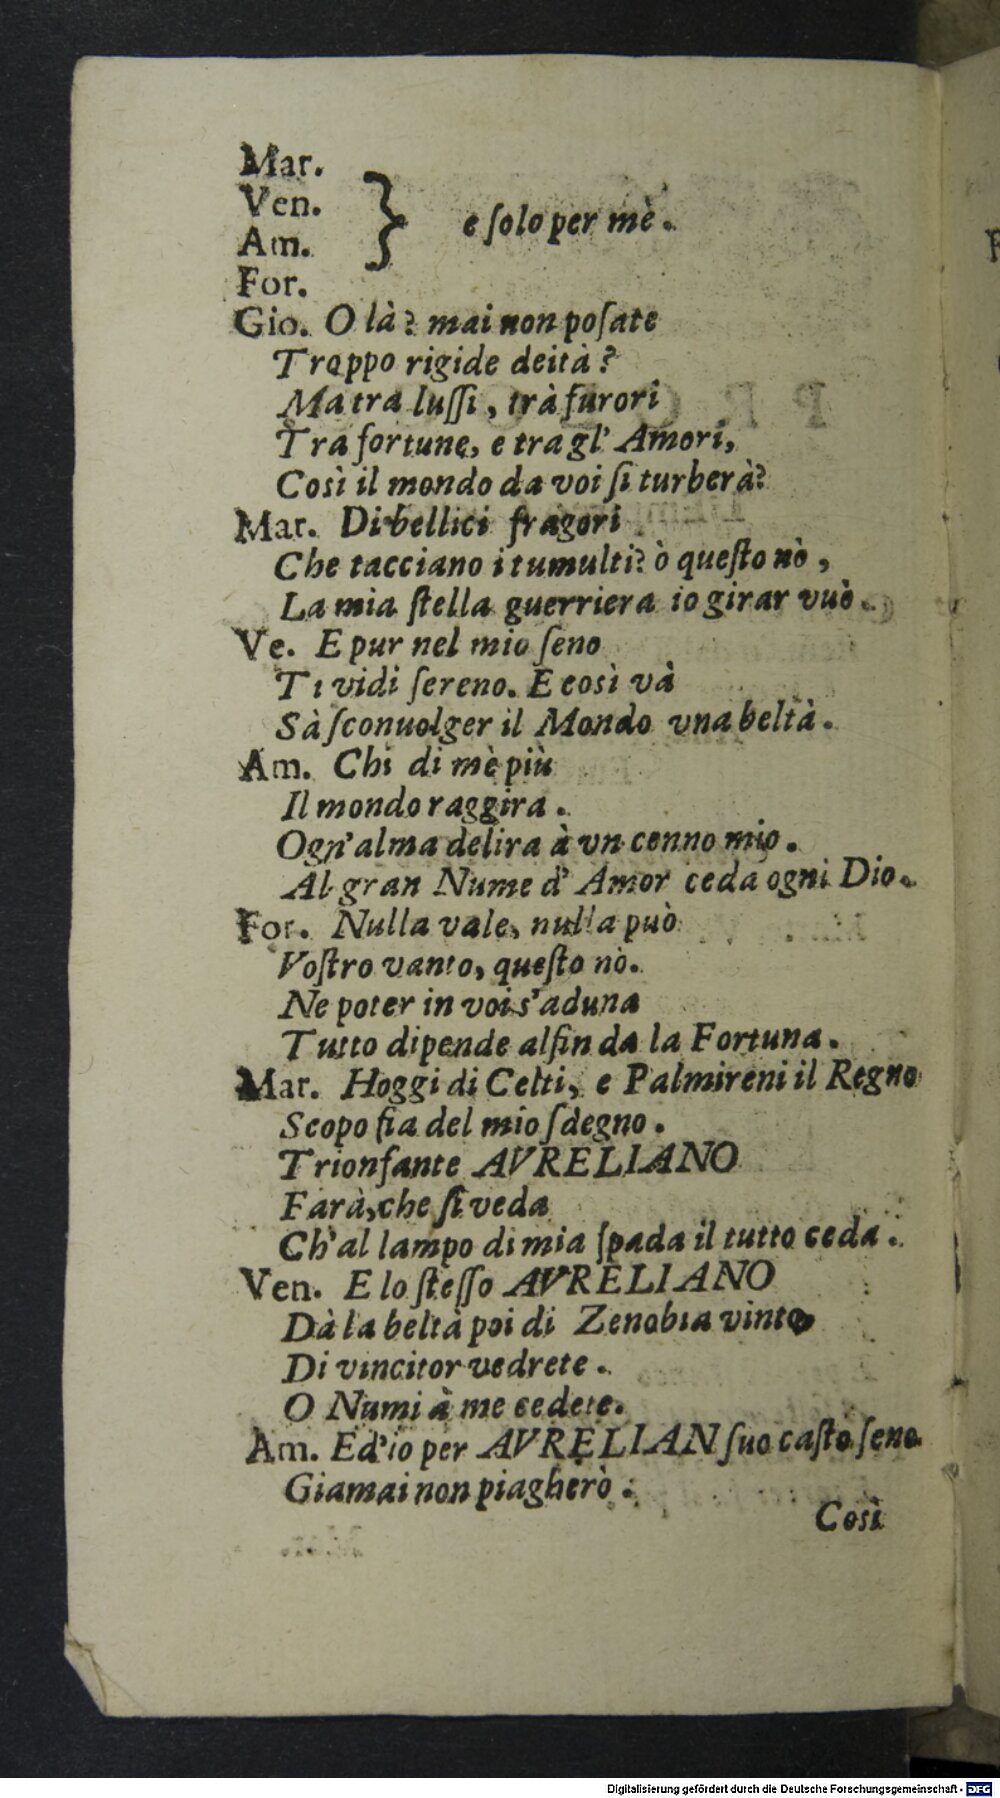 Mar.
Ven.
Am.
For.
} e ſolo per mè.
Gio. O là? mai non poſate
Troppo rigide deità?
Ma tra luſſi, trà furori
Tra fortune, e tra gl' Amori,
Così il mondo da voi ſi turberà?
Mar. Di bellici fragori
Che tacciano i tumulti? ò queſto nò,
La mia ſtella guerriera io girar vuò.
Ve. E pur nel mio ſeno
Ti vidi ſereno. E così và
Sà ſconuolger il Mondo vna beltà.
Am. Chi di mè più
Il mondo raggira.
Ogn' alma delira à vn cenno mio.
Al gran Nume d' Amor ceda ogni Dio.
For. Nulla vale, nulla può
Voſtro vanto, queſto nò.
Ne poter in voi s'aduna
Tutto dipende alfin da la Fortuna.
Mar. Hoggi di Celti, e Palmireni il Regno
Scopo fia del mio ſdegno.
Trionfante AVRELIANO
Farà, che ſi veda
Ch'al lampo di mia ſpada il tutto ceda.
Ven. E lo ſteſſo AVRELIANO
Dà la beltà poi di Zenobia vinto
Di vincitor vedrete.
O Numi à me cedete.
Am. Ed'io per AVRELIAN ſuo caſto ſeno
Giamai non piagherò.
Così
Digitalisierung gefördert durch die Deutsche Forschungsgemeinschaft - DFG